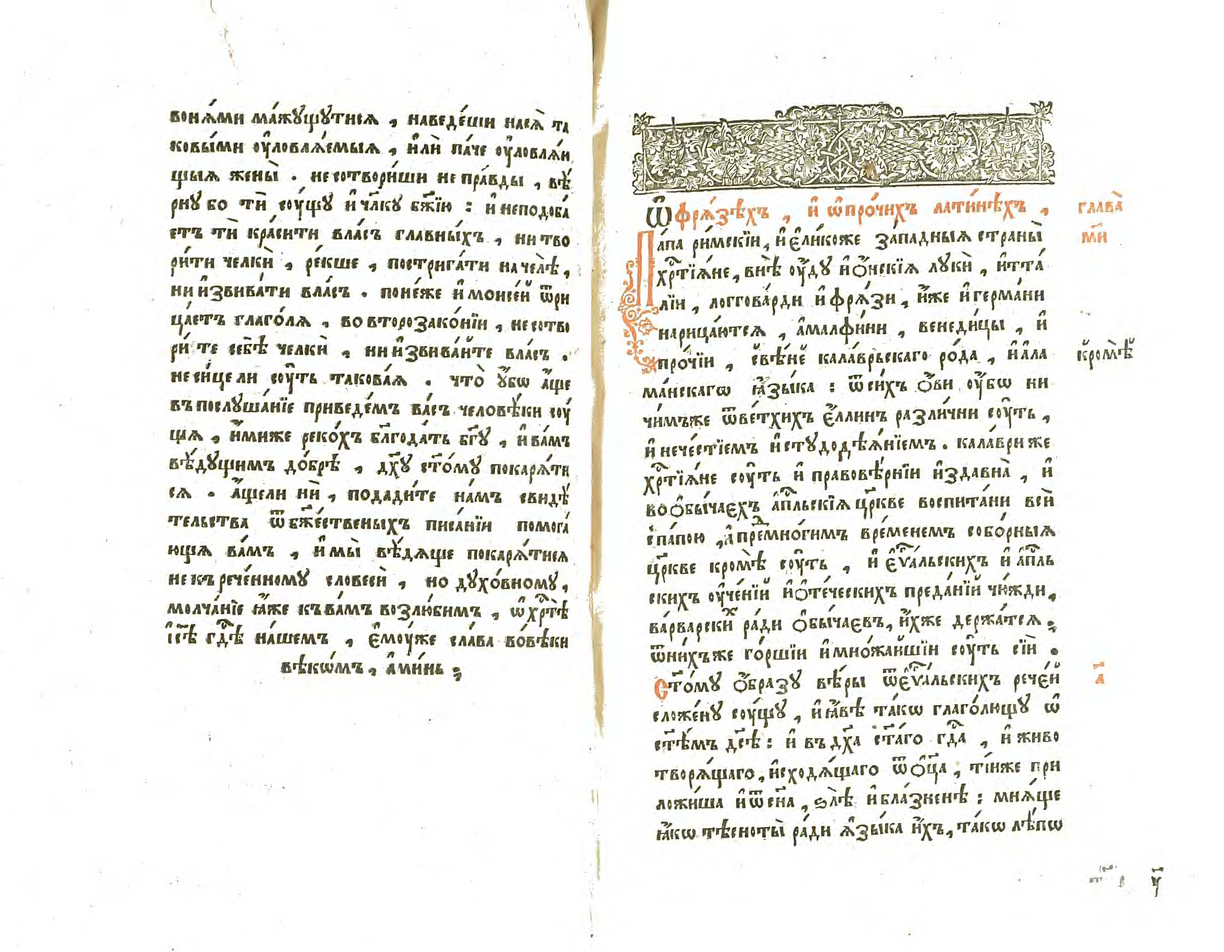 вонѧ́ми ма́жꙋщꙋтисѧ , наведе́ши насѧ̀ та
ковы́ми ᲂу҆ловлѧ́емыѧ , и҆лѝ па́че ᲂу҆ловлѧ́ю
щыѧ жены̀ . не сотвори́ши не пра́вды , вѣ́
рнꙋ бо тѝ сꙋ́щꙋ и҆ чл҃кꙋ бж҃їю : и҆ неподоба́
етъ тѝ кра́сити вла́съ главны́хъ , ни тво
ри́ти челкѝ , ре́кше , постриги́ти на челѣ̀ ,
ни и҆звива́ти вла́съ . поне́же и҆ моисе́й ѿри
ца́етъ глаго́лѧ , во второзако́нїи , не сотво
ри́те себѣ̀ челкѝ , ни и҆звива́йте вла́съ .
не си́це ли сꙋ́ть такова́ѧ . что̀ ᲂу҆́бѡ а҆́ще
въ послꙋша́нїе приведе́мъ ва́съ человѣ́ки сꙋ́
щѧ , и҆́миже реко́хъ бл҃года́ть бг҃ꙋ , и҆ ва́мъ
вѣ́дꙋщимъ до́брѣ , дх҃ꙋ ст҃о́мꙋ покарѧ́ти
сѧ . а҆́ще ли нѝ , подади́те на́мъ свидѣ́
тельства ѿ бж҃е́ственыхъ писа́нїи помога́
ющѧ ва́мъ , и҆ мы̀ вѣ́дѧще покарѧ́тисѧ
не къ рече́нномꙋ словесѝ , но дꙋхо́вномꙋ ,
молча́нїе ꙗ҆́же къ ва́мъ возлю́бимъ , ѡ҆ хрⷭ҇тѣ̀
і҆с҃ѣ гдⷭ҇ѣ на́шемъ , є҆мꙋ́же сла́ва во вѣ́ки
вѣкѡ́мъ , а҆ми́нь ;
Ѡ҆ фрѧ́зѣхъ , и҆ ѡ҆ про́чихъ лати́нѣхъ ,
глава̀
м҃и
Па́па ри́мскїи , и҆ є҆ли́коже за́падныѧ страны̀
хрⷭ҇тїѧ́не , внѣ̀ ᲂу҆́дꙋ и҆ ѻ҆́нскїѧ лꙋкѝ , и҆тта
лі́и , логгова́рди и҆ фрѧ́зи , и҆́же и҆ герма́ни
нарица́ютсѧ , а҆малфи́ни , венеди́цы , и҆
про́чїи , свѣ́не кала́врьскаго ро́да , и҆ а҆ла
кро́мѣ
ма́нскагѡ ꙗ҆зы́ка : ѿ си́хъ ѻ҆́ви ᲂу҆́бѡ ни
чи́мъже ѿ ве́тхихъ є҆́ллинъ разли́чни сꙋ́ть ,
и҆ нече́стїемъ и҆ стꙋдодѣѧ́нїемъ . кала́ври же
хрⷭ҇тїѧ́не сꙋ́ть и҆ правовѣ́рнїи и҆здавна̀ , и҆
во ѻ҆бы́чаєхъ а҆пⷭ҇льскїѧ цр҃кве воспита́ни всѝ
с па́пою , а҆ премно́гимъ вре́менемъ собо́рныѧ
цр҃кве кро́мѣ сꙋ́ть , и҆ є҆ѵⷢ҇альскихъ и҆ а҆пⷭ҇ль
скихъ ᲂу҆че́нїй и҆ ѻ҆те́ческихъ преда́нїй чю́жди ,
ва́рварскиⷯ ра́ди ѻ҆бы́чаєвъ , и҆́хже держа́тсѧ ;
ѿ ни́хъже го́ршїи и҆ мно́жайшїи сꙋ́ть сі́и .
Ст҃о́мꙋ ѻ҆́бразꙋ вѣ́ры ѿ є҆ѵⷢ҇а́льскихъ рече́й
а҃
сло́женꙋ сꙋ́щꙋ , и҆ ꙗ҆́вѣ та́кѡ глаго́лющꙋ ѡ҆
ст҃ѣ́мъ дс҃ѣ : и҆ въ дх҃а ст҃а́го гдⷭ҇а , и҆ живо
творѧ́щаго , и҆сходѧ́щаго ѿ ѻ҆ц҃а , ті́иже при
ложи́ша и҆ ѿ сн҃а , ѕлѣ̀ и҆ бла́зненѣ : мнѧ́ще
ꙗ҆́кѡ тѣсноты̀ ра́ди ѧ҆зы́ка и҆́хъ , та́кѡ лѣ́пѡ
у҃